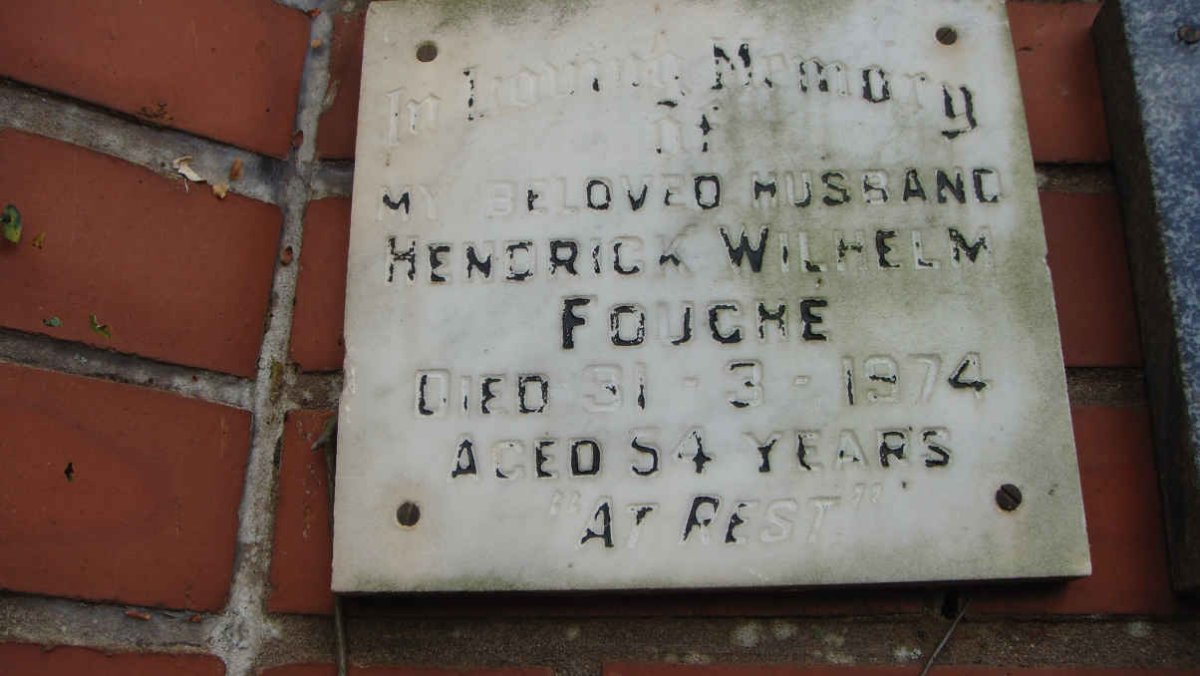 In Loving Memory
of
MY BELOVED HUSBAND
HENDRICK WILHELM
FOUCHE
DIED 31-3-1974
AGED 54 YEARS
"AT REST."